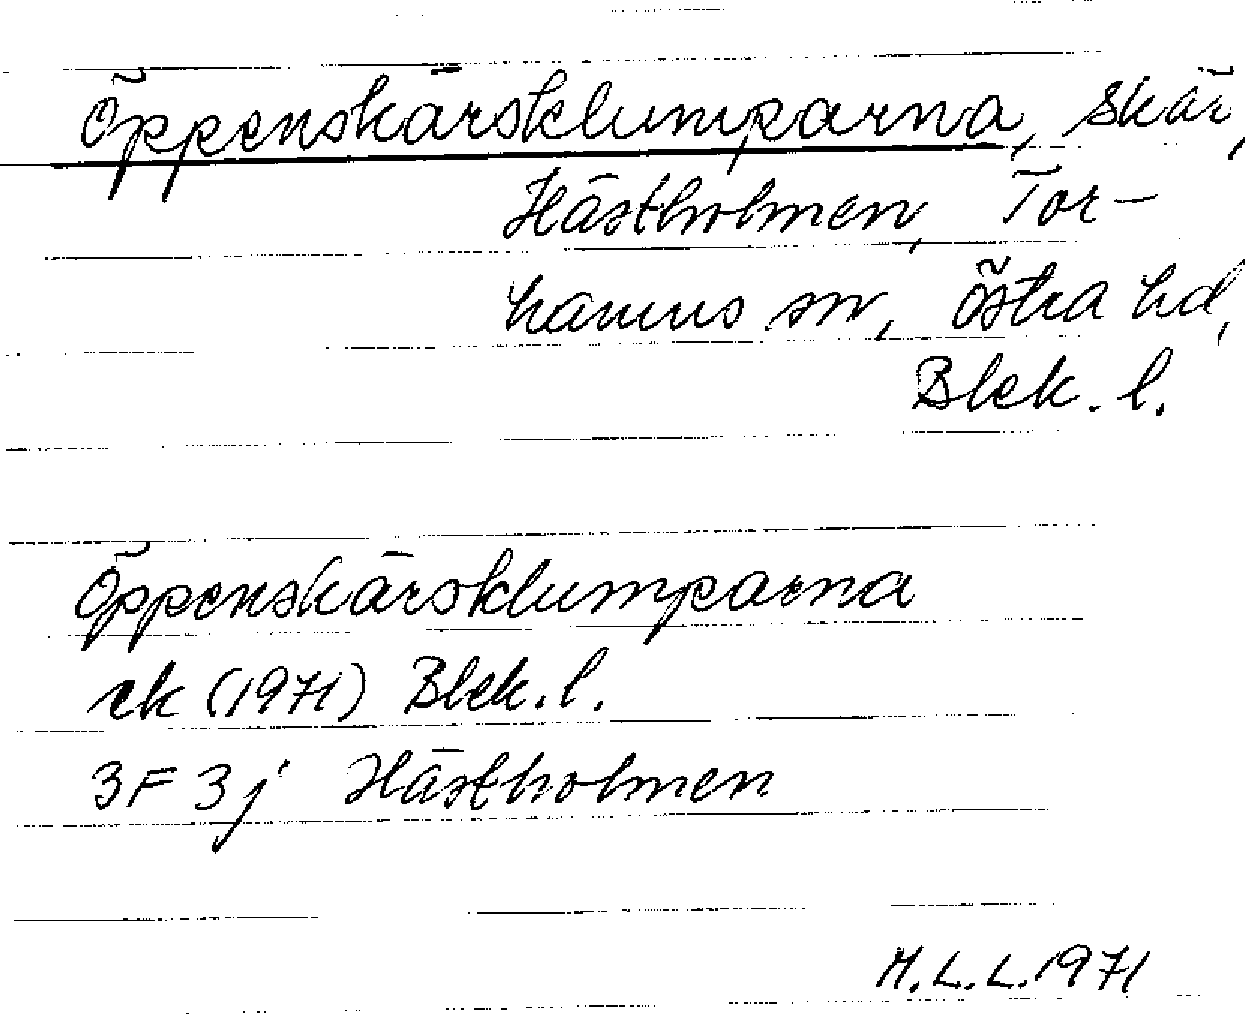 Öppenskärsklumparna, skär,
Hästholmen, Tor-
hamns sn, östra hd,
Blek. l.
Öppenskärsklumparna
ek (1971) Blek. l.
3F 3j Hästholmen
M.L.L. 1971